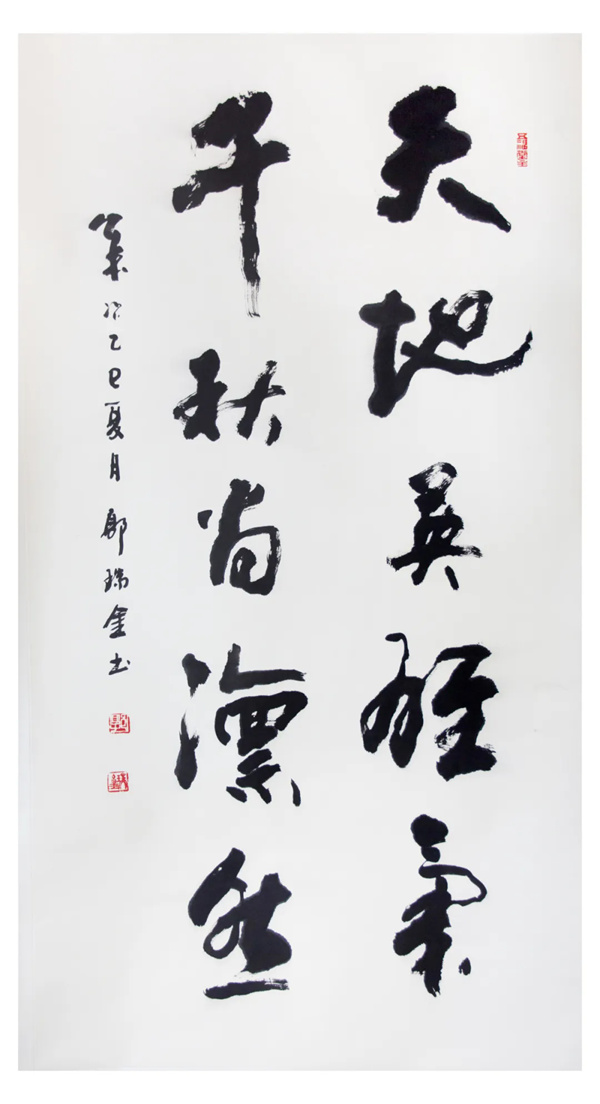 天地英雄氣
千秋尚凛然
歲次乙巳夏月郎瑞金书